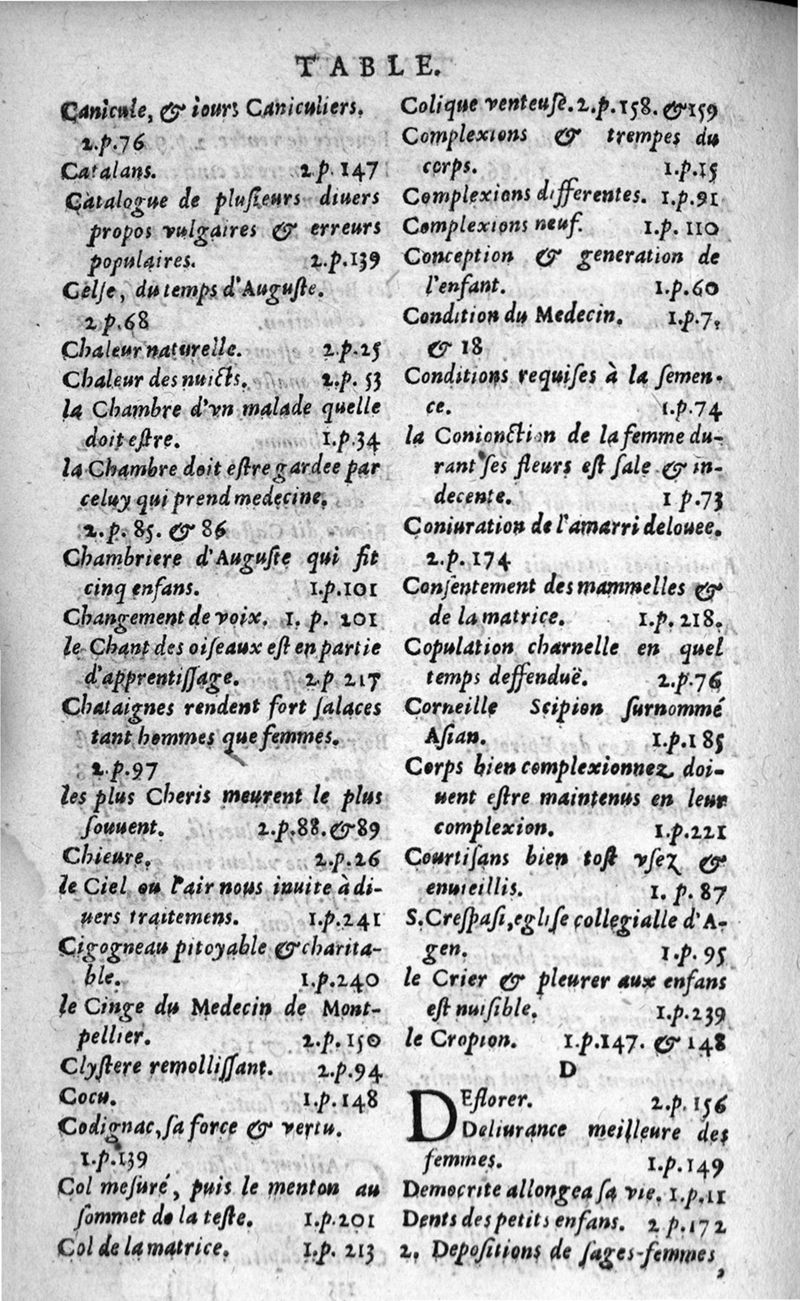 TABLE.
Canicule, & iours Caniculiers.
2.p.76
Catalans. 2.p.147
Catalogue de pluſieurs diuers
propos vulgaires & erreurs
populaires. 2.p.139
Celſe, du temps d'Auguſte.
2 p.68
Chaleur naturelle. 2.p.25
Chaleur des nuicts. 2.p. 53
la Chambre d'vn malade quelle
doit eſtre. 1.p.34
la Chambre doit eſtre gardee par
celuy qui prend medecine.
2.p. 85. & 86
Chambriere d'Auguſte qui fit
cinq enfans. 1.p.101
Changement de voix. 1. p. 201
le Chant des oiſeaux eſt en partie
d'apprentiſſage. 2 p 217
Chataignes rendent fort ſalaces
tant hommes que femmes.
2.p.97
les plus Cheris meurent le plus
ſouuent. 2.p.88.&89
Chieure. 2.p.26
le Ciel ou l'air nous inuite à di-
uers traitemens. 1.p.241
Cigogneau pitoyable & charita-
ble. 1.p.240
le Cinge du Medecin de Mont-
pellier. 2.p.150
Clyſtere remolliſſant. 2.p.94
Cocu. 1.p.148
Codignac, ſa force & vertu.
1.p.139
Col meſuré, puis le menton au
ſommet de la teſte. 1.p.201
Col de la matrice. 1.p. 213
Colique venteuſe. 2.p.158. &159
Complexions & trempes du
corps. 1.p.15
Complexions differentes. 1.p.91
Complexions neuf. 1.p. 110
Conception & generation de
l'enfant. 1.p.60
Condition du Medecin. 1.p.7.
& 18
Conditions requiſes à la ſemen-
ce. 1.p.74
la Conionction de la femme du-
rant ſes fleurs eſt ſale & in-
decente. 1 p.73
Coniuration de l'amarri delouee.
2.p. 174
Conſentement des mammelles &
de la matrice. 1.p. 218.
Copulation charnelle en quel
temps deffenduë. 2.p.76
Corneille Scipion ſurnommé
Aſian. 1.p.185
Corps bien complexionnez doi-
uent eſtre maintenus en leur
complexion. 1.p.221
Courtiſans bien toſt vſez &
enuieillis. 1. p. 87
S. Creſpaſi, egliſe collegialle d'A-
gen. 1.p. 95
le Crier & pleurer aux enfans
eſt nuiſible. 1.p.239
le Cropion. 1.p.147. & 148
D
DEflorer. 2.p. 156
Deliurance meilleure des
femmes. 1.p.149
Democrite allongea ſa vie. 1.p.11
Dents des petits enfans. 2 p.172
2. Depoſitions de ſages-femmes
,